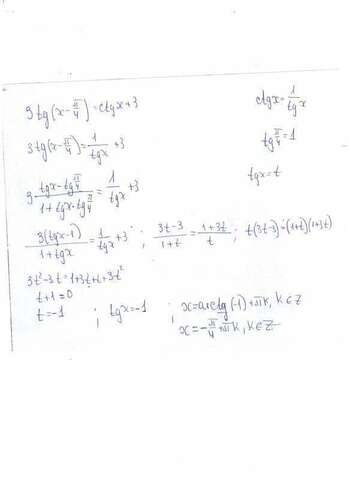 3tg(x-π/4)=ctgx+3
ctgx=1/tgx
3tg(x-π/4)=1/tgx+3
tgπ/4=1
3·(tgx-tgπ/4)/(1+tgx·tgπ/4)=1/tgx+3
tgx=t
3(tgx-1)/(1+tgx)=1/tgx+3 ; (3t-3)/(1+t)=(1+3t)/t ; t(3t-3)=(1+t)(1+3t)
3t²-3t=1+3t+t+3t²
t+1=0
t=-1 ; tgx=-1 ; x=arctg(-1)+πk, k∈Z
x=-π/4+πk, k∈Z